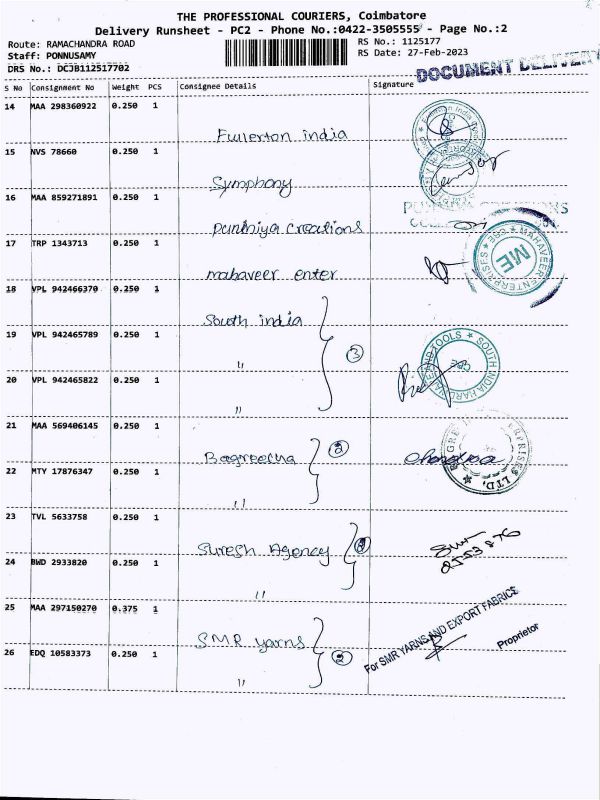 THE PROFESSIONAL COURIERS, Coimbatore
Delivery Runsheet - PC2 - Phone No.:0422-3505555 - Page No.:2
Route: RAMACHANDRA ROAD
RS No.: 1125177
Staff: PONNUSAMY
RS Date: 27-Feb-2023
DRS No.: DCJB112517702
DOCUMENT DELIVERY
S No Consignment No Weight PCS Consignee Details Signature
14 MAA 298360922 0.250 1
Fullerton india
15 NVS 78660 0.250 1
Symphony
16 MAA 859271891 0.250 1
CREATIONS
punhiya creations
17 TRP 1343713 0.250 1
MAHAVEER ENTERPRISES * CBE *
ME
mahaveer enter
18 VPL 942466370 0.250 1
South india
19 VPL 942465789 0.250 1
" ③
TOOLS * SOUTH INDIA HARD
CBE
20 VPL 942465822 0.250 1
"
21 MAA 569406145 0.250 1
Bagreecha ②
22 MTY 17876347 0.250 1
"
23 TVL 5633758 0.250 1
Suresh Agency ②
24 BWD 2933820 0.250 1
"
25 MAA 297150270 0.375 1
SMR yarns
For SMR YARNS AND EXPORT FABRICS
Proprietor
26 EDQ 10583373 0.250 1
" ②